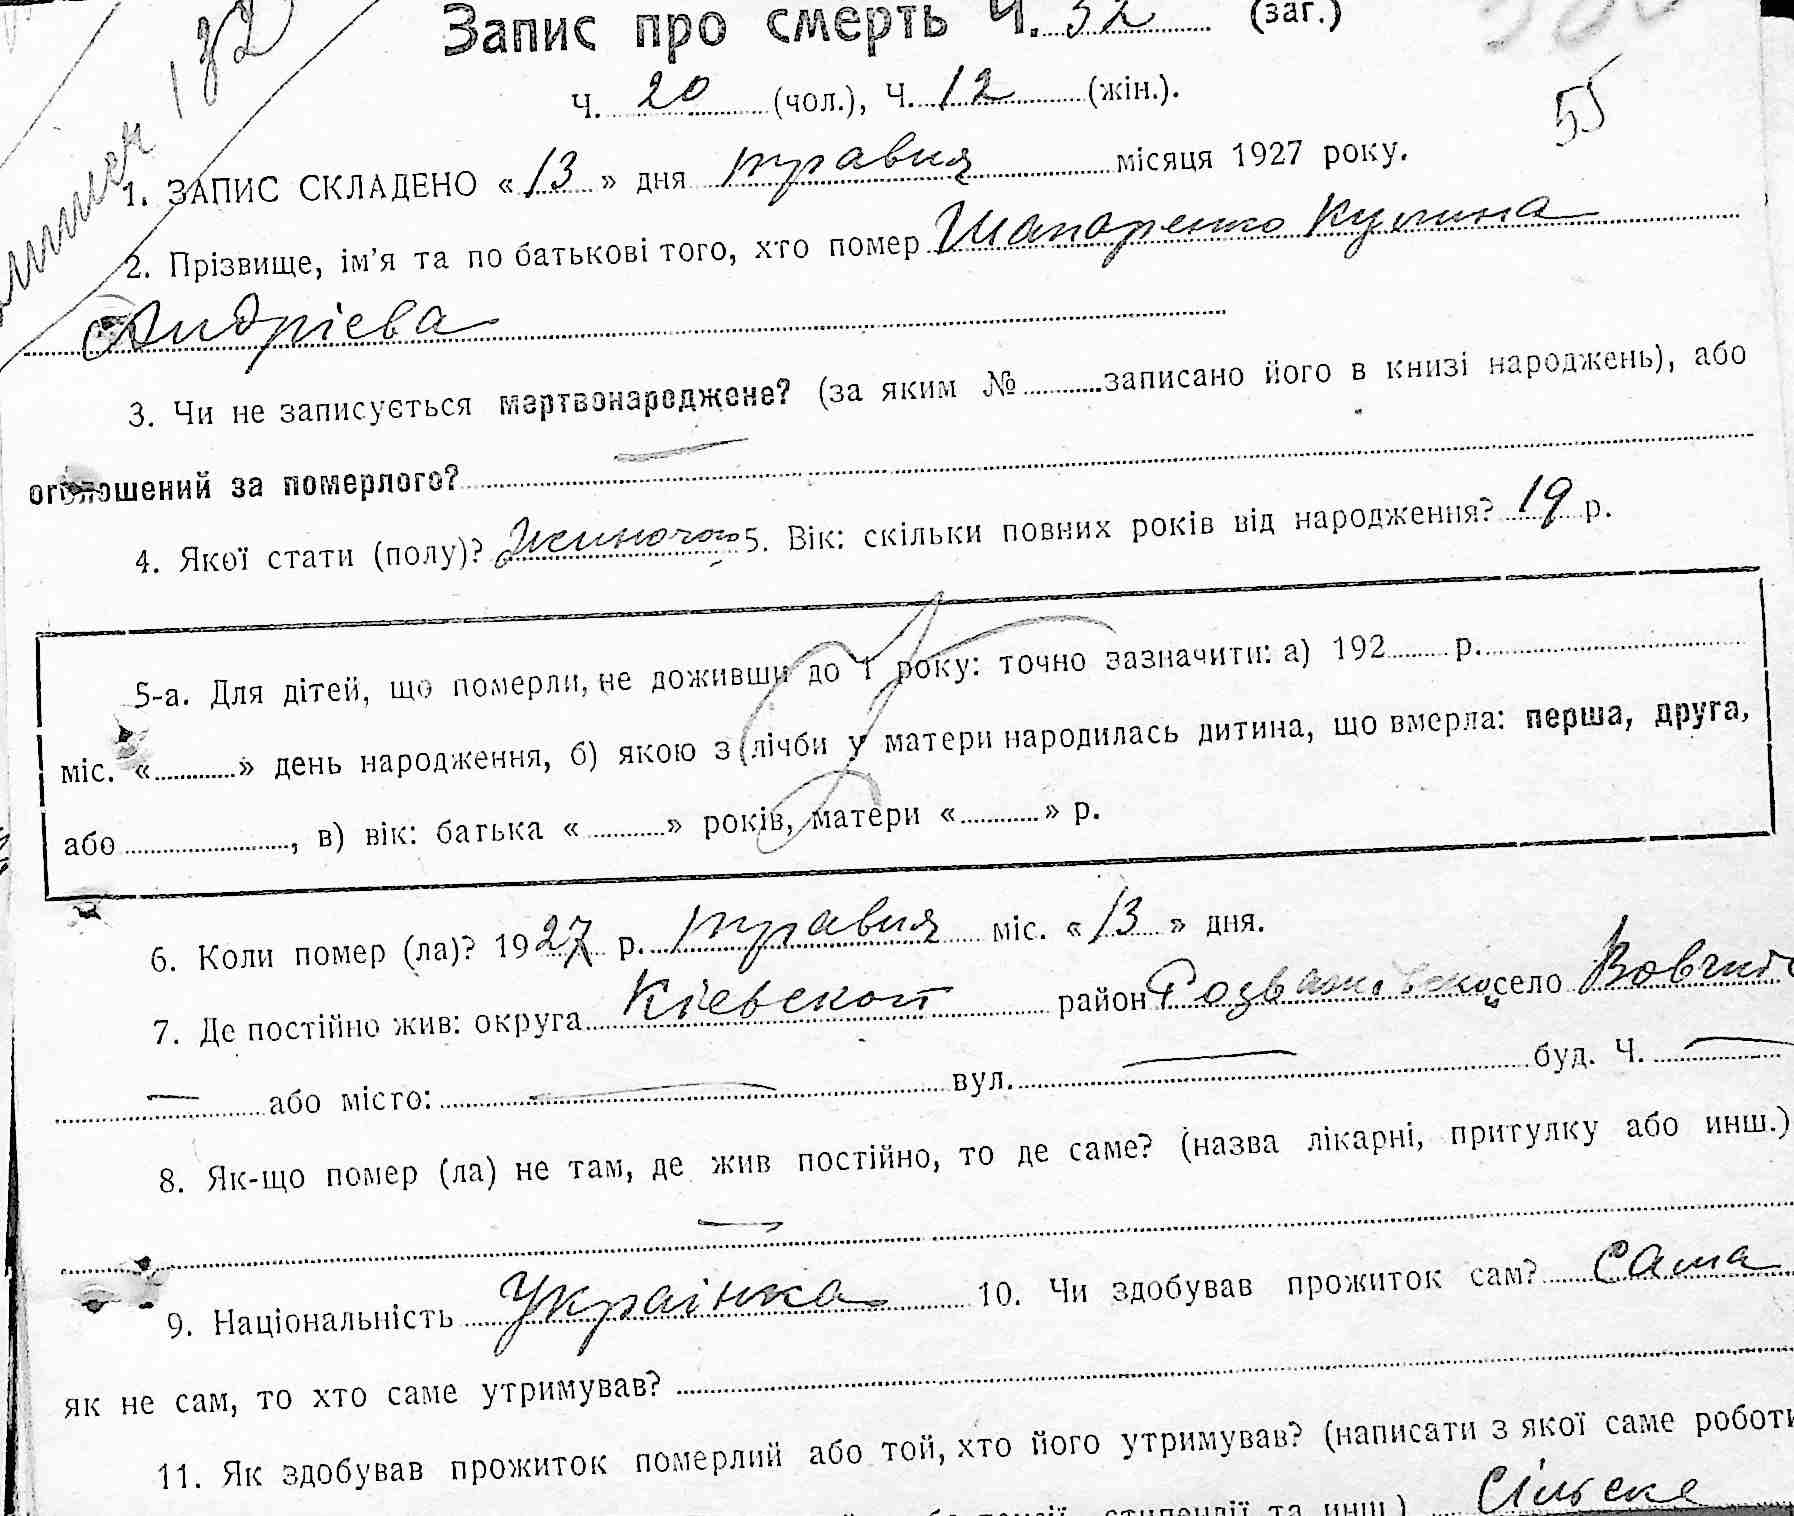 Запис про смерть Ч. 32 (заг.)
Ч. 20 (чол.), Ч. 12 (жін.).
55
1. ЗАПИС СКЛАДЕНО «13» дня травня місяця 1927 року.
2. Прізвище, ім'я та по батькові того, хто помер Шапаренко Кулина
Андрієва
3. Чи не записується мертвонароджене? (за яким № записано його в книзі народжень), або
оголошений за померлого? —
4. Якої стати (полу)? Жиночого 5. Вік: скільки повних років від народження? 19 р.
5-а. Для дітей, що померли, не доживши до 1 року: точно зазначити: а) 192 р.
міс. « » день народження, б) якою з лічби у матери народилась дитина, що вмерла: перша, друга,
або , в) вік: батька « » років, матери « » р.
6. Коли помер (ла)? 1927 р. травня міс. «13» дня.
7. Де постійно жив: округа Кіевской район село
— або місто: — вул. — буд. Ч. —
8. Як-що помер (ла) не там, де жив постійно, то де саме? (назва лікарні, притулку або инш.)
—
9. Національність Українка 10. Чи здобував прожиток сам? Сама
як не сам, то хто саме утримував?
11. Як здобував прожиток померлий або той, хто його утримував? (написати з якої саме роботи
стипендії та инш.) Сільске